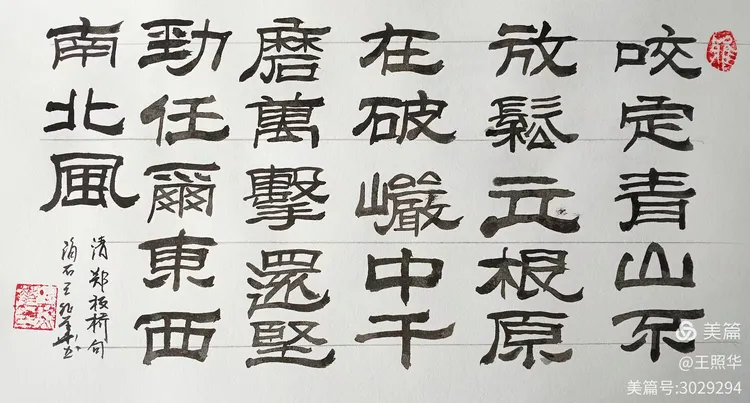 咬定青山不
放鬆立根原
在破巖中千
磨萬擊還堅
勁任爾東西
南北風
清郑板桥句
石王照华书
美篇
@王照华
美篇号:3029294